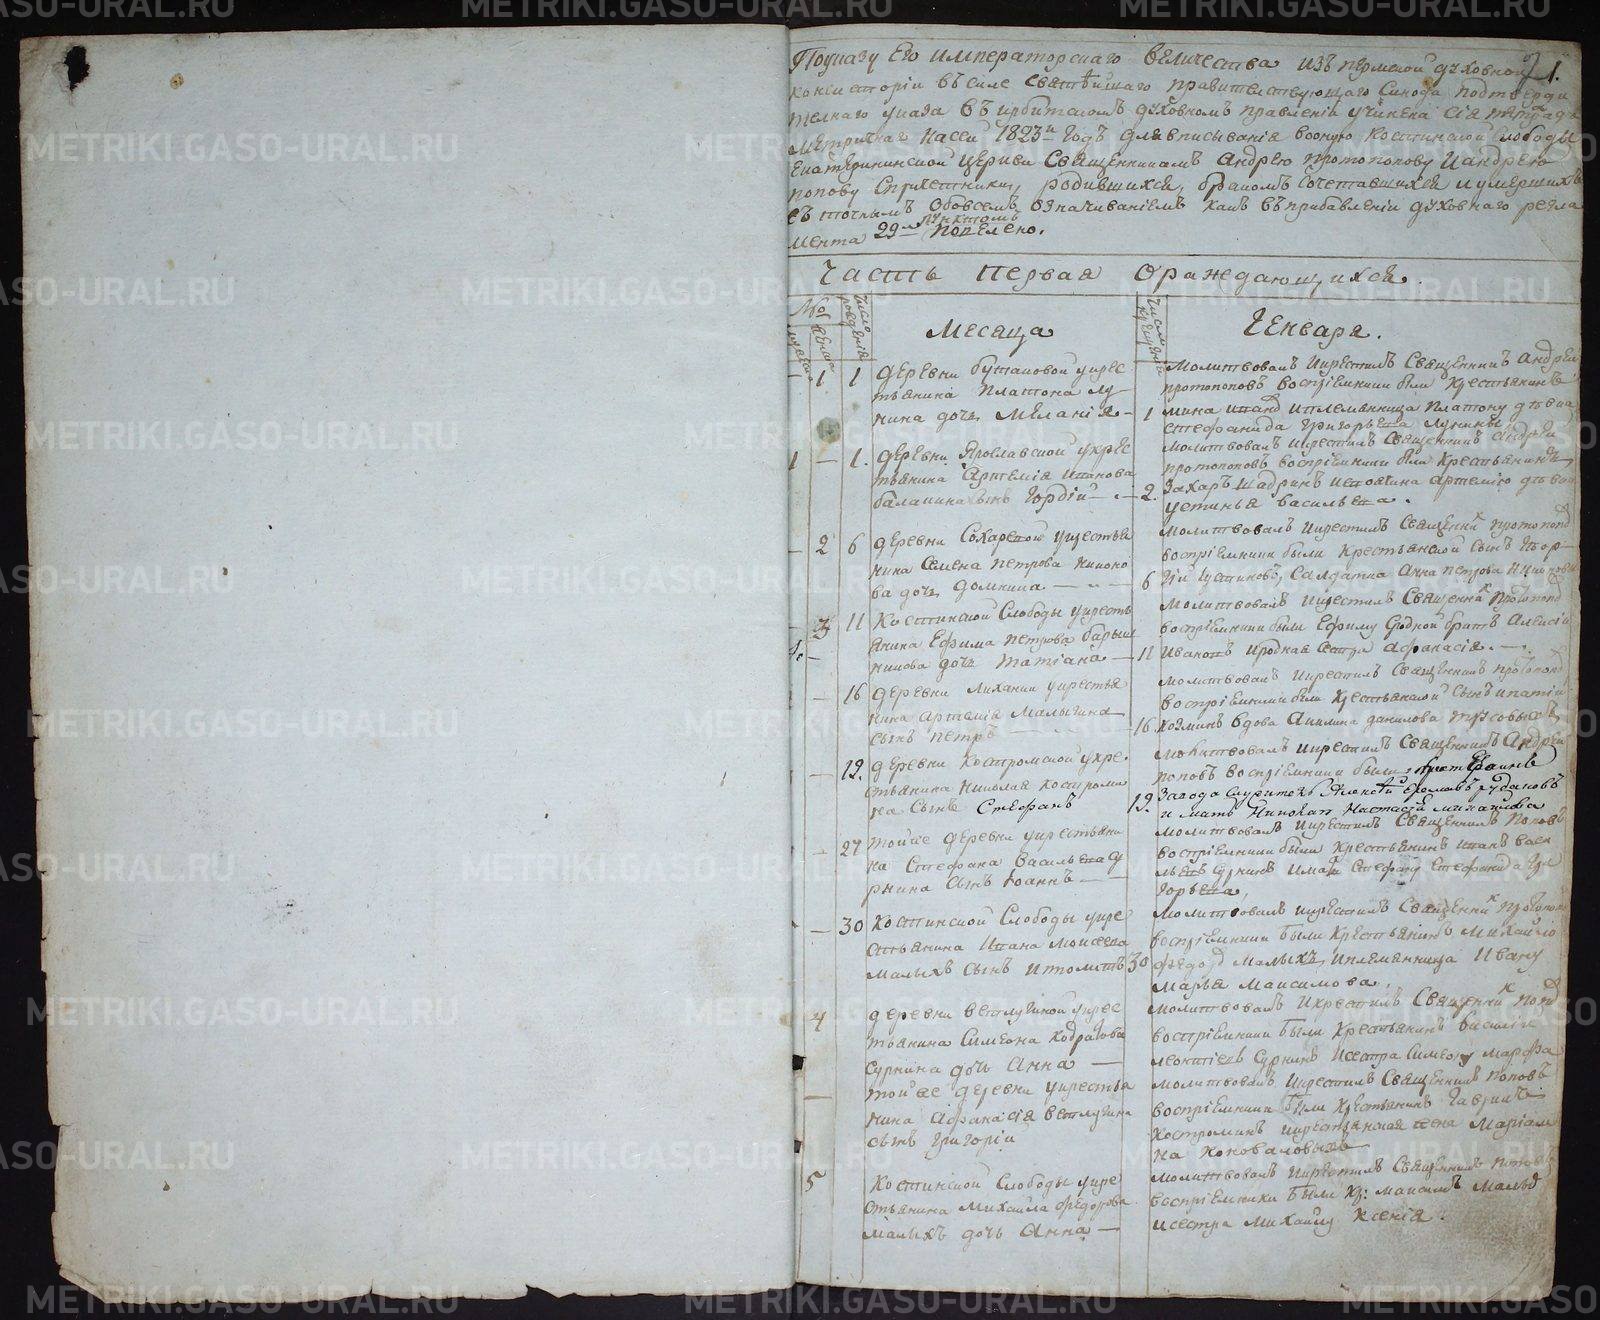 По указу Его императорскаго величества изъ пермской духовной
консистории въ силе святѣйшаго правителствующаго Синода подтверди
телнаго указа въ ирбитскомъ духовномъ правлении учинена сія тетрадь
на сей 1823й годъ для вписыванія оную Костинской слободы
Екатерининской церкви Священникамъ Андрею протопопову и Андрею
попову с причетники, родившихся, бракомъ сочетавшихся и умершихъ
съ точнымъ обо всемъ означиваніемъ какъ въ прибавленіи духовнаго регла
мента 29м пунктомъ повелено.
1.
Часть первая о раждающихся.
№
Число рожденія
Месяца
Число крещенія
Генваря.
1 1 деревни бутаковой у крес
тьянина Платона лу
нина дочь Меланія
Молитвовалъ и крестилъ Священникъ Андрей
протопоповъ воспріемники были крестьянинъ
1 мина и племянница платону дѣвка
стефанида григорьева лунины
1 1. деревни Ярославской у крес
тьянина Артемія иванова
балакина сынъ Гордій
молитвовалъ и крестилъ Священникъ Андрей
протопоповъ воспріемники были крестьянинъ
2. Захаръ Шадринъ артемію дѣвка
устинья васильева.
2 6 деревни Сохаревой у крестья
нина Семена петрова никоно
ва дочь домника
молитвовалъ и крестилъ Священникъ протопопо
воспріемники были крестьянской сынъ
6 устиновъ, Салдатка Анна петрова
3 11 Костинской Слободы у кресть
янина Ефима петрова барыш
никова дочь татіана
молитвовалъ и крестилъ Священникъ протопопо
воспріемники были Ефиму родной братъ Алексей
11 ивановъ и родная сестра афанасія.
16 деревни Лихания у крестья
нина артемія Малыгина
сынъ петръ
молитвовалъ и крестилъ Священникъ протопопо
воспріемники были крестьянской сынъ ипатій
16 Козминъ вдова Акилина данилова
19. деревни Костромской у кре
стьянина Николая костроми
на сынъ Стефанъ
молитвовалъ и крестилъ Священникъ Андрей
поповъ воспріемники были
19. Завода служитель Алексей рудаковъ
и мать Николая Настасія михайлова
27 той же деревни у крестьяни
на Стефана васильева су
рнина сынъ Іоаннъ
молитвовалъ и крестилъ Священникъ поповъ
воспріемники были крестьянинъ иванъ васи
льевъ сурнинъ и мать Стефану стефанида гри
горьева.
30 Костинской Слободы у кре
стьянина Ивана моисеева
малыхъ сынъ ипполитъ
молитвовалъ и крестилъ Священникъ протопопо
воспріемники были крестьянинъ михайло
30 федоровъ малыхъ, и племянница ивану
марья максимова.
4 деревни ветлугиной у крес
тьянина Симеона кодратова
сурнина дочь Анна
молитвовалъ и крестилъ Священникъ попо
воспріемники были крестьянинъ василій
леонтіевъ сурнинъ и сестра симеону марфа
той же деревни у крестья
нина афанасія ветлугина
сынъ григорій
молитвовалъ и крестилъ Священникъ поповъ
воспріемники были крестьянинъ гаврилъ
костроминъ и крестьянская жена маріам
на коноваловыхъ
5 Костинской Слободы у кре
стьянина михаила федорова
малыхъ дочь Анна
молитвовалъ и крестилъ Священникъ поповъ
воспріемники были кр: максимъ малыхъ
и сестра михайлу ксенія.
METRIKI.GASO-URAL.RU